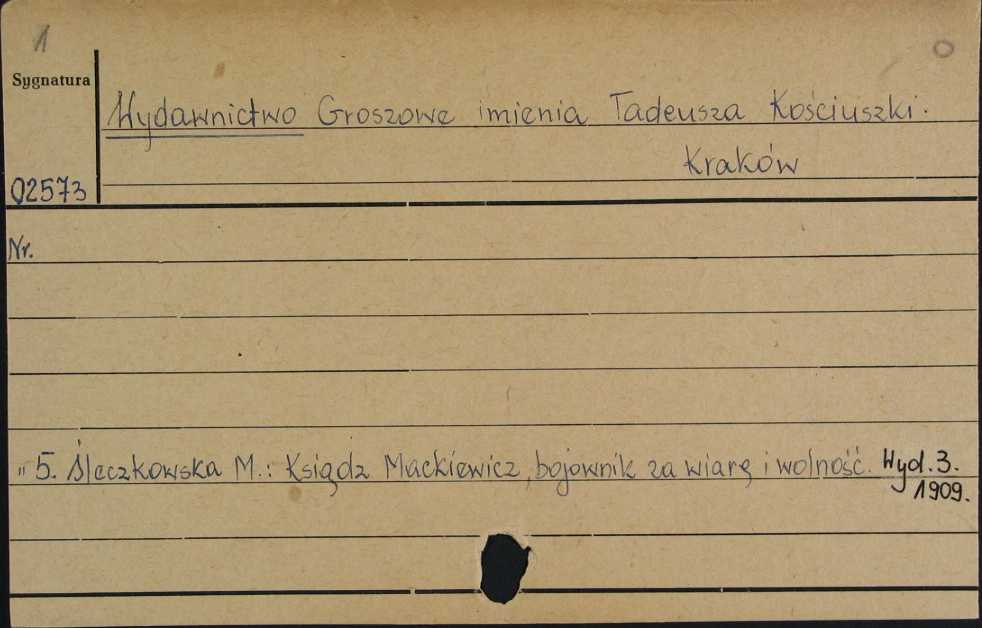 1
Sygnatura
Wydawnictwo Groszowe imienia Tadeusza Kościuszki.
Kraków
02573
Nr.
" 5. Śleczkowska M.: Ksiądz Mackiewicz, bojownik za wiarę i wolność. Wyd. 3.
1909.